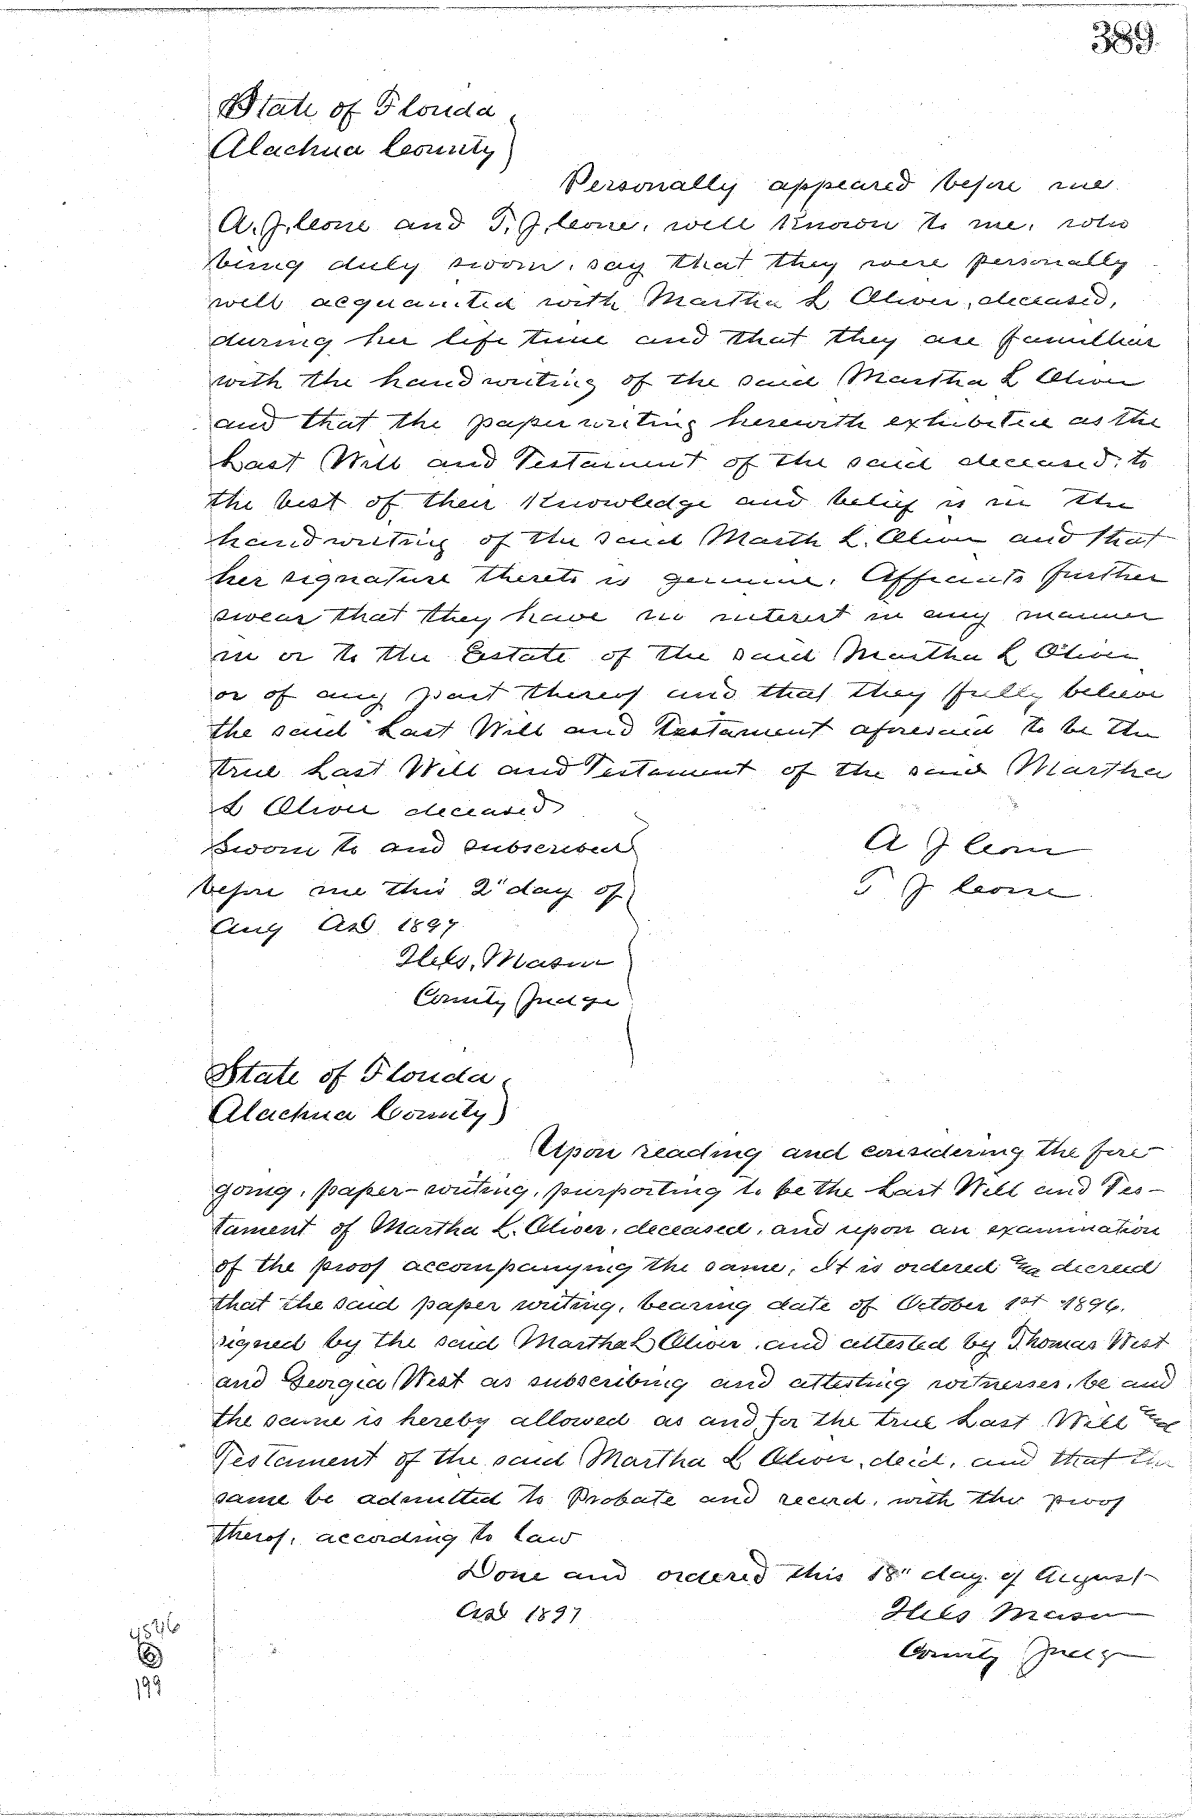 389
State of Florida
Alachua County
Personally appeared before me
A. J. Cone and T. J. Cone, well Known to me, who
being duly sworn, say that they were personally
well acquainted with Martha L Oliver, deceased,
during her life time and that they are familiar
with the handwriting of the said Martha L Oliver
and that the paper writing herewith exhibited as the
Last Will and Testament of the said deceased, to
the best of their Knowledge and belief is in the
handwriting of the said Marth L. Oliver and that
her signature thereto is genuine. Affiants further
swear that they have no interest in any manner
in or to the Estate of the said Martha L Oliver
or of any part thereof and that they fully believe
the said Last Will and Testament aforesaid to be the
true Last Will and Testament of the said Martha
L Oliver deceased
Sworn to and subscribed
before me this 2" day of
Aug AD 1897
A J Cone
T J Cone
Mason
County Judge
State of Florida
Alachua County
Upon reading and considering the fore-
going, paper-writing, purporting to be the Last Will and Tes-
tament of Martha L. Oliver, deceased, and upon an examination
of the proof accompanying the same, It is ordered and decreed
that the said paper writing, bearing date of October 1st 1896,
signed by the said Martha L Oliver, and attested by Thomas West
and Georgia West as subscribing and attesting witnesses, be and
the same is hereby allowed as and for the true Last Will and
Testament of the said Martha L Oliver, dec'd, and that the
same be admitted to Probate and record, with the proof
therof, according to law
Done and ordered this 18" day of August
AD 1897
Mason
County Judge
4546
6
199